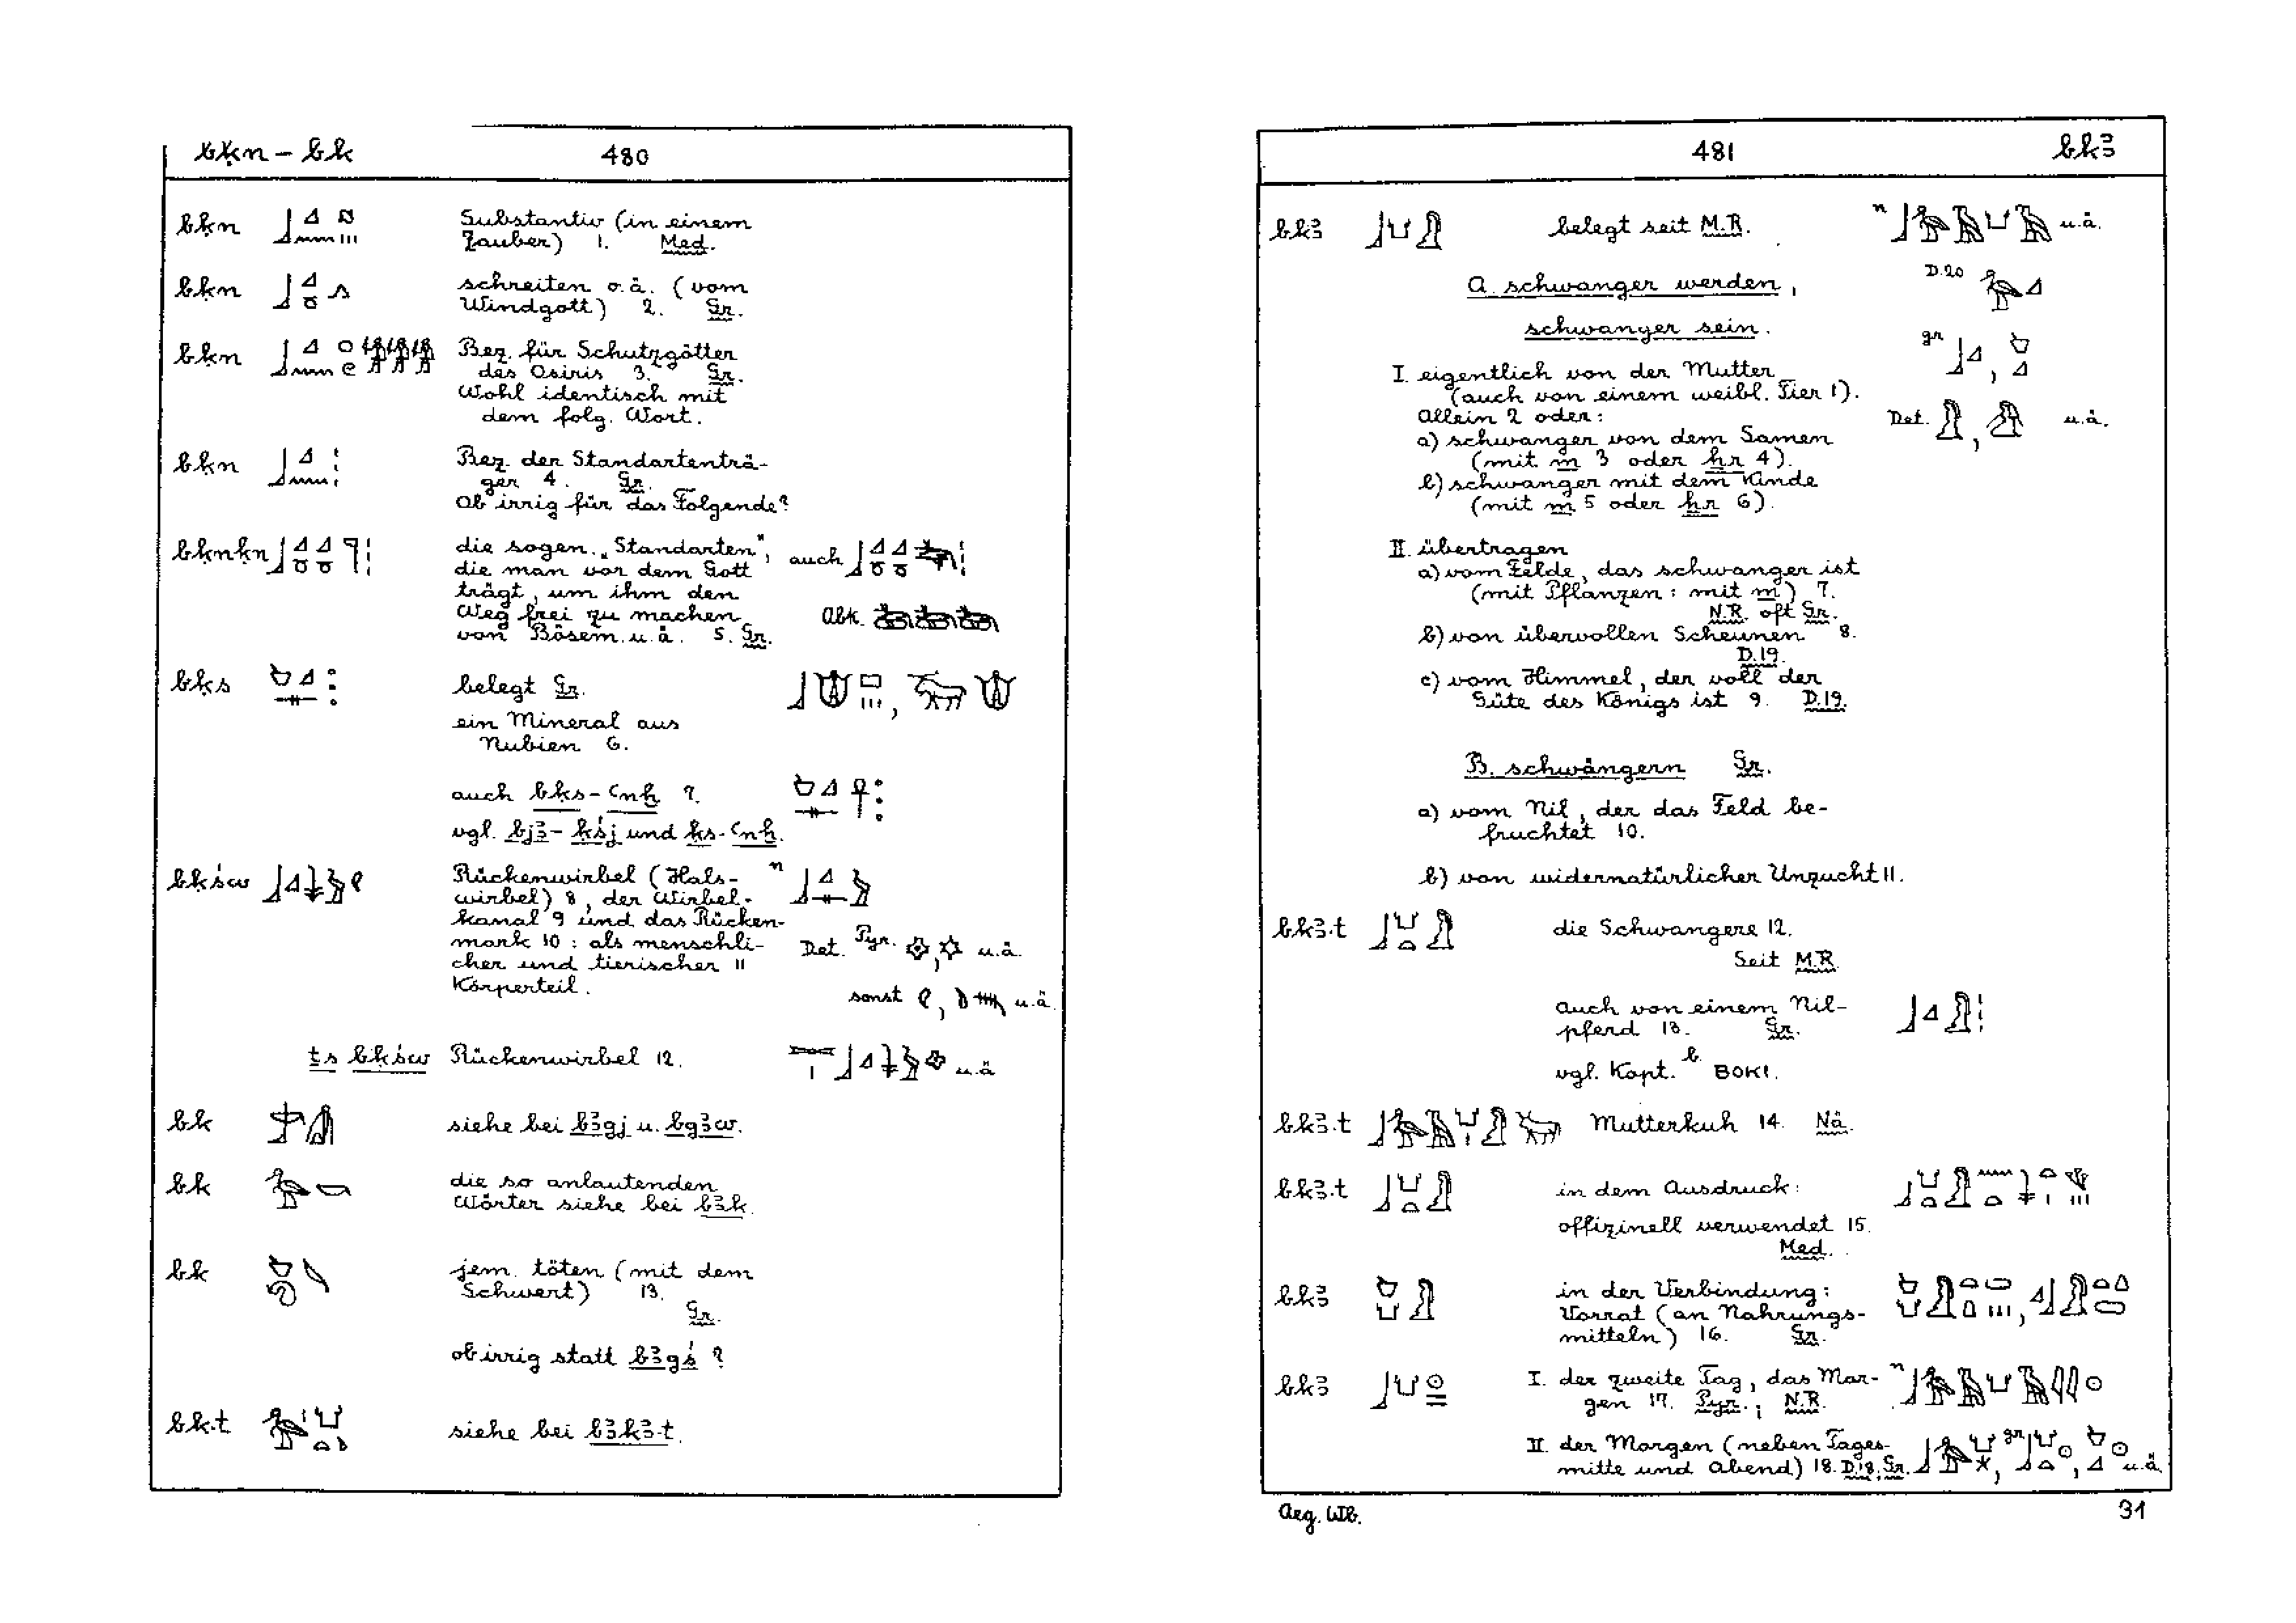 bḳn – bk 480
bḳn Substantiv (in einem
Zauber) 1. Med.
bḳn schreiten o.ä. (vom
Windgott) 2. Gr.
bḳn Bez. für Schutzgötter
des Osiris 3. Gr.
Wohl identisch mit
dem folg. Wort.
bḳn Bez. der Standartenträ-
ger 4. Gr.
Ob irrig für das Folgende?
bḳnḳn die sogen. „Standarten“, auch
die man vor dem Gott
trägt, um ihm den
Weg frei zu machen Abk.
von Bösem u.ä. 5. Gr.
bḳs belegt Gr.
ein Mineral aus
Nubien 6.
auch bḳs-ꜥnḫ 7.
vgl. bjꜣ-ḳśj und ḳs-ꜥnḫ.
bḳśw Rückenwirbel (Hals- n
wirbel) 8, der Wirbel-
kanal 9 und das Rücken-
mark 10 : als menschli- Det. Pyr. u.ä.
cher und tierischer 11
Körperteil. sonst u.ä.
ṯs bḳśw Rückenwirbel 12. u.ä.
bk siehe bei bꜣgj u. bgꜣw.
bk die so anlautenden
Wörter siehe bei bꜣk.
bk jem. töten (mit dem
Schwert) 13.
Gr.
ob irrig statt bꜣgś ?
bk.t siehe bei bꜣkꜣ.t.
481 bkꜣ
bkꜣ belegt seit M.R. n u.ä.
A. schwanger werden, D.20
schwanger sein. gr
I. eigentlich von der Mutter
(auch von einem weibl. Tier 1).
Allein 2 oder: Det. u.ä.
a) schwanger von dem Samen
(mit m 3 oder ḥr 4).
b) schwanger mit dem Kinde
(mit m 5 oder ḥr 6).
II. übertragen
a) vom Felde, das schwanger ist
(mit Pflanzen: mit m) 7.
N.R. oft Gr.
b) von übervollen Scheunen 8.
D.19.
c) vom Himmel, der voll der
Güte des Königs ist 9. D.19.
B. schwängern Gr.
a) vom Nil, der das Feld be-
fruchtet 10.
b) von widernatürlicher Unzucht 11.
bkꜣ.t die Schwangere 12.
Seit M.R.
auch von einem Nil-
pferd 13. Gr.
vgl. Kopt. b. ⲂⲞⲔⲒ.
bkꜣ.t Mutterkuh 14. Nä.
bkꜣ.t in dem Ausdruck:
offizinell verwendet 15.
Med.
bkꜣ in der Verbindung:
Vorrat (an Nahrungs-
mitteln) 16. Gr.
bkꜣ I. der zweite Tag, das Mor- n
gen 17. Pyr.; N.R.
II. der Morgen (neben Tages- gr
mitte und Abend) 18. D.18, Gr. u.ä.
Aeg. Wb. 31